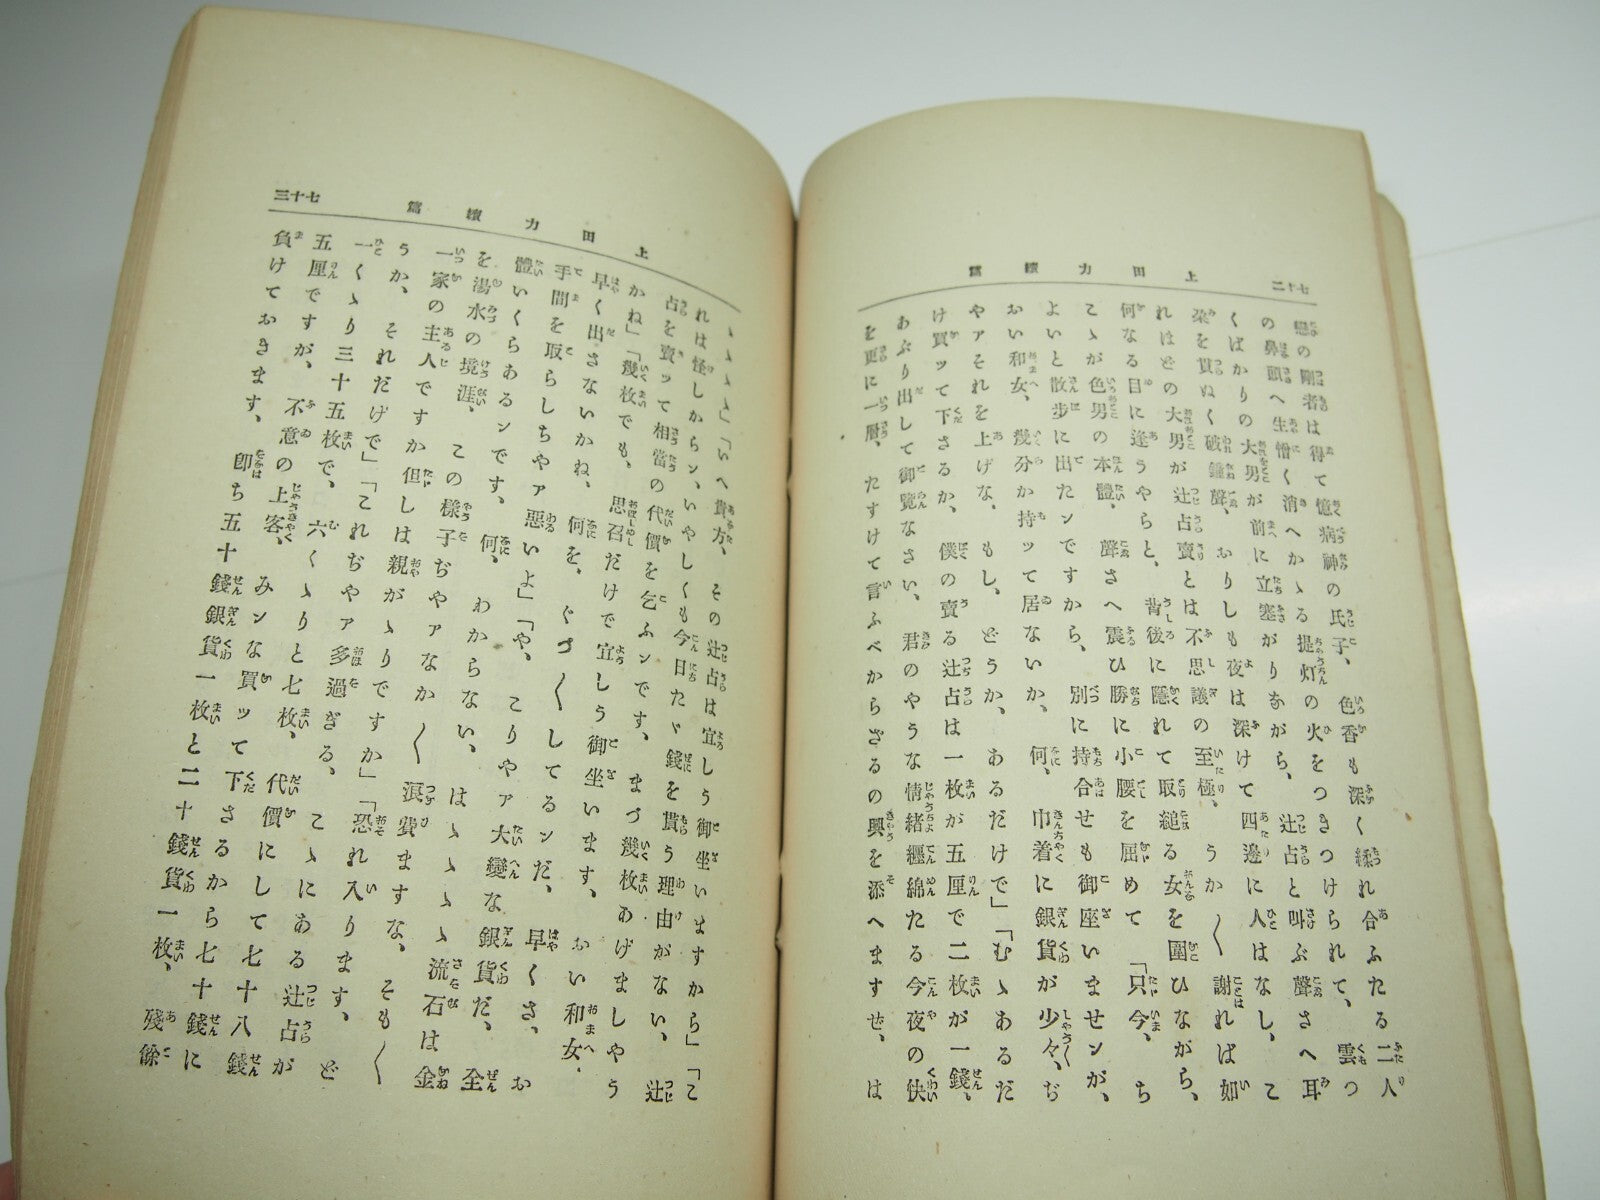 七十二
上田力續篇
戀の剛者は得て憶病神の氏子、色香も深く縺れ合ふたる二人
の鼻頭へ生憎く消へかゝる提灯の火をつきつけられて、雲つ
くばかりの大男が前に立塞がりながら、辻占と叫ぶ聲さへ耳
染を貫ぬく破鐘聲、おりしも夜は深けて四邊に人はなし、こ
れはどの大男が辻占賣とは不思議の至極、うか〱謝れば如
何なる目に逢うやらと、背後に隱れて取縋る女を圍ひながら、
こゝが色男の本體、聲さへ震ひ勝に小腰を屈めて「只今、ち
よいと散歩に出たンですから、別に持合せも御座いませンが、
おい和女、幾分か持ッて居ないか、何、巾着に銀貨が少々、ぢ
やアそれを上げな。もし、どうか、あるだけで」「むゝあるだ
け買ッて下さるか、僕の賣る辻占は一枚が五厘で二枚が一錢、
あぶり出して御覽なさい、君のやうな情緒纒綿たる今夜の快
を更に一層、たすけて言ふべからざるの興を添へますぜ、は
七十三
上田力續篇
ゝゝゝ」「いへ貴方、その辻占は宜しう御坐いますから」「こ
れは怪しからン、いやしくも今日たゞ錢を貰う理由がない、辻
占を賣って相當の代價を乞ふンです、まづ幾枚あげましやう
かね」「幾枚でも、思召だけで宜しう御坐います、おい和女、
早く出さないかね、何を、ぐづ〱してるンだ、早くさ、お
手間を取らしちやァ惡いよ」「や、こりやァ大變な銀貨だ、全
體いくらあるンです、何、わからない、はゝゝゝ流石は金
を湯水の境涯、この樣子ぢやァなか〱浪費ますな、そも〱
一家の主人ですか但しは親がゝりですか」「恐れ入ります、ど
うか、それだけで」「これぢやァ多過ぎる、こゝにある辻占が
一くゝり三十五枚で、六くゝりと七枚、代價にして七十八錢
五厘ですが、不意の上客、みンな買ッて下さるから七十錢に
負けておきます、卽ち五十錢銀貨一枚と二十錢貨一枚、殘餘